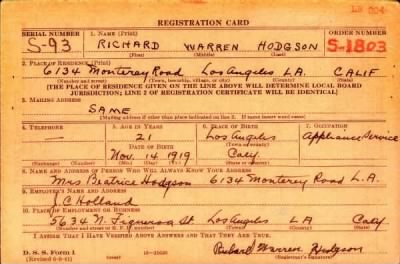 REGISTRATION CARD
SERIAL NUMBER 1. NAME (Print) ORDER NUMBER
S-93 RICHARD WARREN HODGSON S-1803
(First) (Middle) (Last)
2. PLACE OF RESIDENCE (Print)
6134 Monterey Road Los Angeles L.A. CALIF
(Number and street) (Town, township, village, or city) (County) (State)
[THE PLACE OF RESIDENCE GIVEN ON THE LINE ABOVE WILL DETERMINE LOCAL BOARD
JURISDICTION; LINE 2 OF REGISTRATION CERTIFICATE WILL BE IDENTICAL]
3. MAILING ADDRESS
SAME
[Mailing address if other than place indicated on line 2. If same insert word same]
4. TELEPHONE 5. AGE IN YEARS 6. PLACE OF BIRTH 7. OCCUPATION
— 21 Los Angeles Appliance Service
DATE OF BIRTH (Town or county)
Nov. 14 1919 Calif.
(Exchange) (Number) (Mo.) (Day) (Yr.) (State or country)
8. NAME AND ADDRESS OF PERSON WHO WILL ALWAYS KNOW YOUR ADDRESS
Mrs Beatrice Hodgson 6134 Monterey Road L.A.
9. EMPLOYER'S NAME AND ADDRESS
J. C. Holland
10. PLACE OF EMPLOYMENT OR BUSINESS
5634 N. Figueroa St. Los Angeles LA Calif
(Number and street or R. F. D. number) (Town) (County) (State)
I AFFIRM THAT I HAVE VERIFIED ABOVE ANSWERS AND THAT THEY ARE TRUE.
D. S. S. Form 1
(Revised 6-9-41) Richard Warren Hodgson